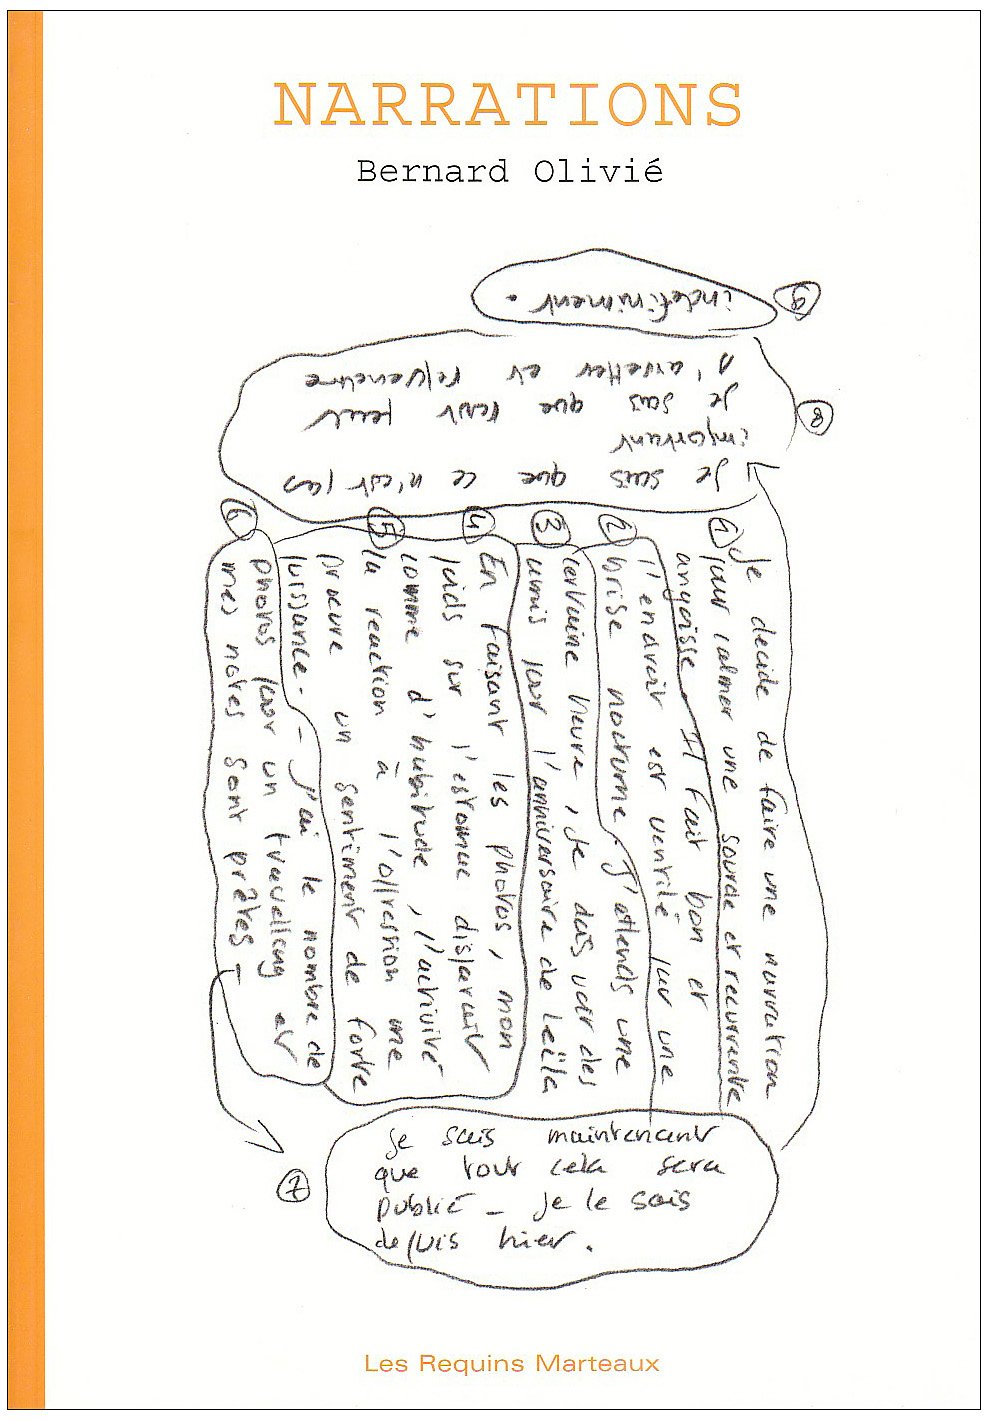 NARRATIONS
Bernard Olivié
1
Je decide de faire une narration
pour calmer une sourde et recurrente
angoisse. Il fait bon et
l'endroit est ventilé par une
2
brise nocturne. J'attends une
3
certaine heure, je dois voir des
amis pour l'anniversaire de Leïla
4
En faisant les photos, mon
poids sur l'estomac disparait
comme d'habitude, l'activité
5
la reaction à l'oppression me
procure un sentiment de forte
puissance. - J'ai le nombre de
6
photos pour un travelling et
mes notes sont prêtes -
7
je sais maintenant
que tout cela sera
publié - je le sais
depuis hier.
8
Je sais que ce n'est pas
important
je sais que tout peut
s'arretter et
9
indefiniment.
Les Requins Marteaux